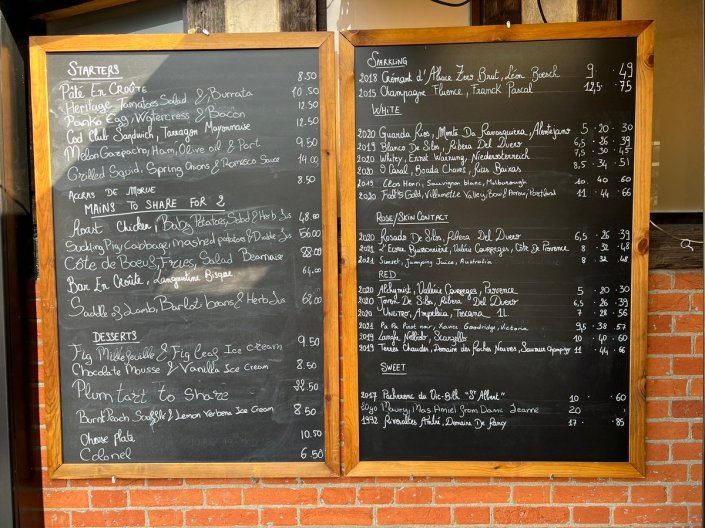 STARTERS
Pâté En Croûte 8.50
Heritage Tomatoes Salad & Burrata 10.50
Panko Egg, Watercress & Bacon 12.50
Cod Club Sandwich, Tarragon Mayonnaise 12.50
Melon Gazpacho, Ham, Olive oil & Port 9.50
Grilled Squid, Spring Onions & Romesco Sauce 14.00
Accras De Morue 8.50
MAINS TO SHARE FOR 2
Roast Chicken, Baby Potatoes, Salad & Herb Jus 48.00
Suckling Pig, Cabbage, Mashed potatoes & Jus 56.00
Côte de Boeuf, Fries, Salad Bearnaise
Bar En Croûte, Langoustine Bisque 64.00
Saddle of Lamb, Barlot beans & Herb Jus 68.00
DESSERTS
Fig Millefeuille & Fig Leaf Ice cream 9.50
Chocolate Mousse & Vanilla Ice Cream 8.50
Plum tart to share 22.50
Burnt Peach Soufflé & Lemon Verbena Ice Cream 8.50
Cheese plate 10.50
Colonel 6.50
SPARKLING
2018 Crémant d'Alsace Zero Brut, Léon Boesch 9 · 49
2015 Champagne Fluence, Franck Pascal 12,5 · 75
WHITE
2020 Guarda Rios, Monte Da Ravasqueira, Alentejano 5 · 20 · 30
2019 Blanco De Silo, Ribera Del Duero 6,5 · 26 · 39
2020 Whitey, Ernst Warnung, Niederösterreich 7,5 · 30 · 45
2020 Casal, Boada Chaves, Rias Baixas 8.5 · 34 · 51
2019 Clos Henri, Sauvignon blanc, Malborough 10 · 40 · 60
2020 Fool's Gold, Villamette Valley, Bow & Arrow, Portland 11 · 44 · 66
ROSE/SKIN CONTACT
2020 Rosado De Silo, Ribera Del Duero 6,5 · 26 · 39
2021 Valérie Courrèges, Côte De Provence 8 · 32 · 48
2021 Sunset, Jumping Juice, Australia 8 · 32 · 48
RED
2020 Alchymist, Valérie Courrèges, Provence 5 · 20 · 30
2020 Joven De Silo, Ribera Del Duero 6,5 · 26 · 39
2020 Unlitro, Ampeleia, Toscana 1L 7 · 28 · 56
2021 Pa Pa Pinot noir, Xavier Goodridge, Victoria 9,5 · 38 · 57
2019 Langhe Nebbiolo, Scarzello 10 · 40 · 60
2019 Terres Chaudes, Domaine des Roches Neuves, Saumur Champigny 11 · 44 · 66
SWEET
2017 Pacherenc du Vic-Bilh "St Albert" 10 · 60
Maury, Mas Amiel from Dame Jeanne 20
1992 Rivesaltes Ambré, Domaine De Rancy 17 · 85